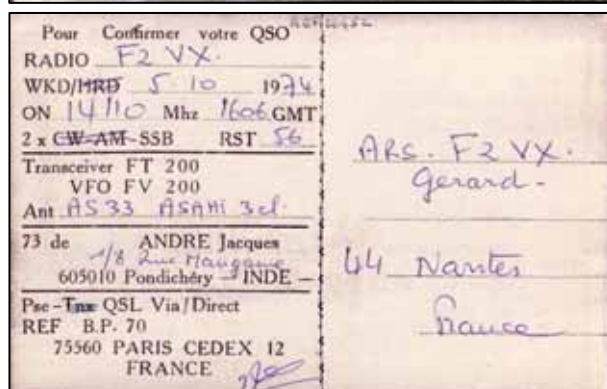 Pour Confirmer votre QSO
RADIO F2 VX.
WKD/HRD 5.10 1974
ON 14/10 Mhz 1606 GMT
2 x CW-AM-SSB RST 56
Transceiver FT 200
VFO FV 200
Ant AS33 ASAHI 3el.
73 de ANDRE Jacques
1/8 Rue
605010 Pondichéry - INDE -
Pse-Tnx QSL Via/Direct
REF B.P. 70
75560 PARIS CEDEX 12
FRANCE
ARS. F2 VX.
Gerard -
44 Nantes
France